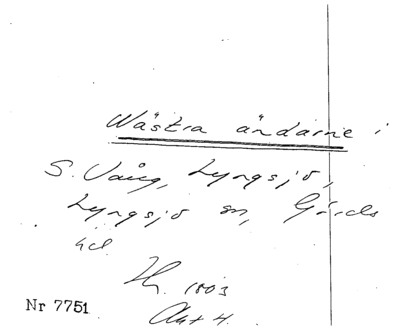 Wästra ändarne i
S. Vång, Lyngsjö,
Lyngsjö sn, Gärds
hd.
1803
Akt 4.
Nr 7751